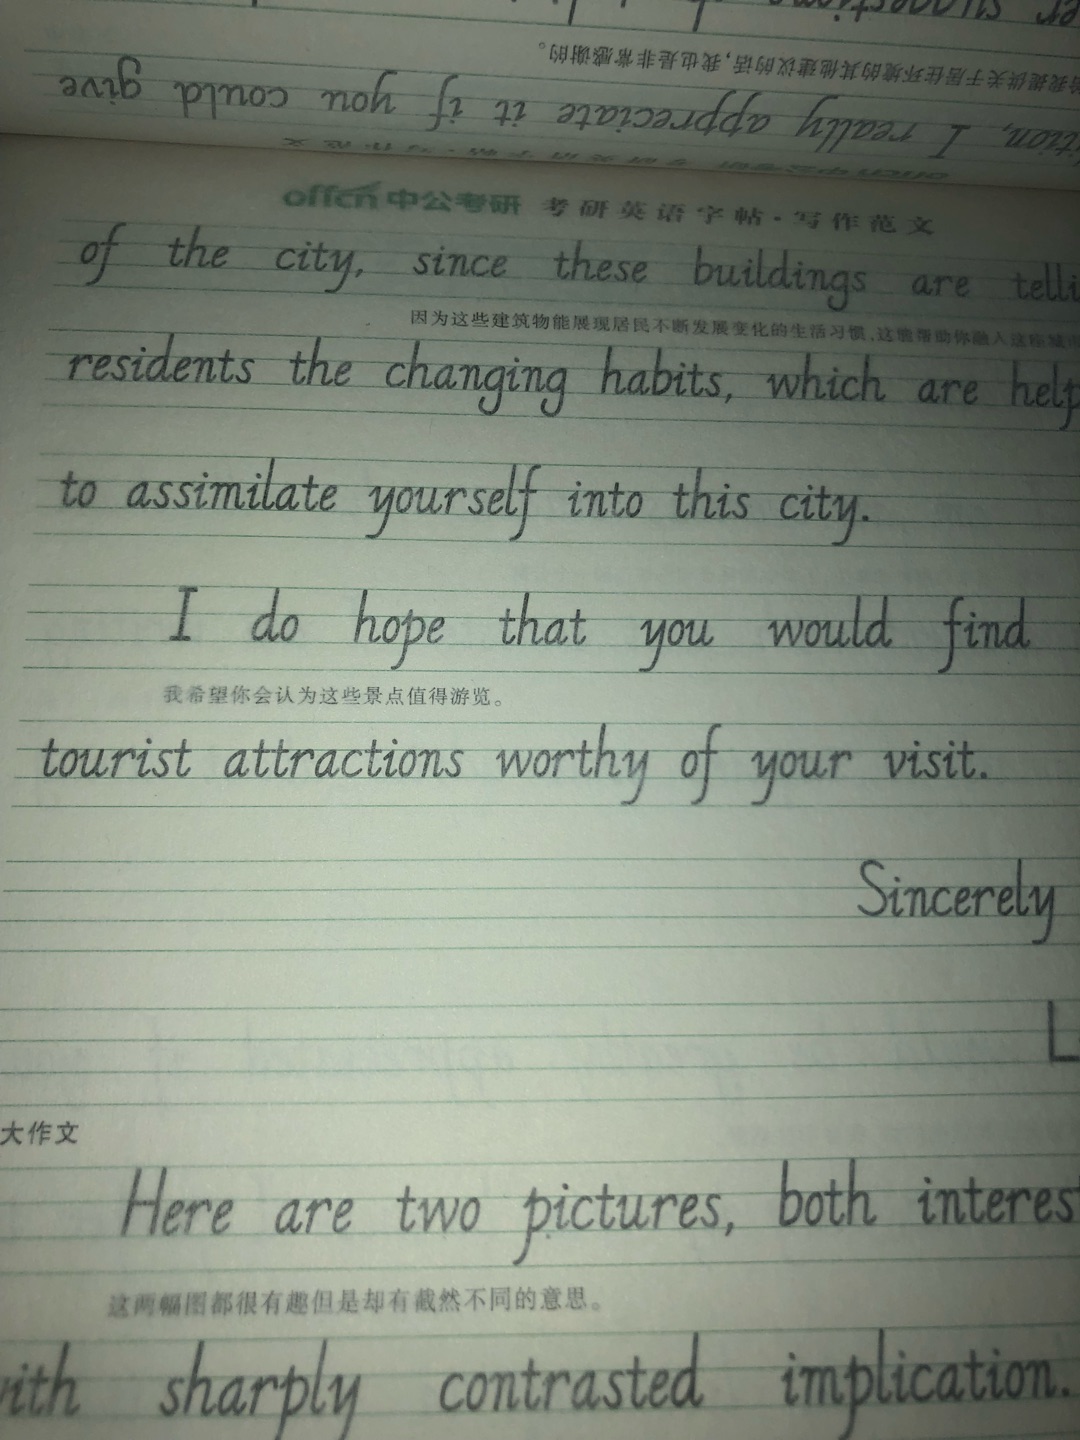 suggestions
给我提供关于居住环境的其他建议的话,我也是非常感谢的。
I really appreciate it if you could give
offcn中公考研 考研英语字帖·写作范文
offcn中公考研 考研英语字帖·写作范文
of the city, since these buildings are
因为这些建筑物能展现居民不断发展变化的生活习惯,这能帮助你融入这座城市
residents the changing habits, which are help
to assimilate yourself into this city.
I do hope that you would find
我希望你会认为这些景点值得游览。
tourist attractions worthy of your visit.
Sincerely
L
大作文
Here are two pictures, both interes
这两幅图都很有趣但是却有截然不同的意思。
ith sharply contrasted implication.